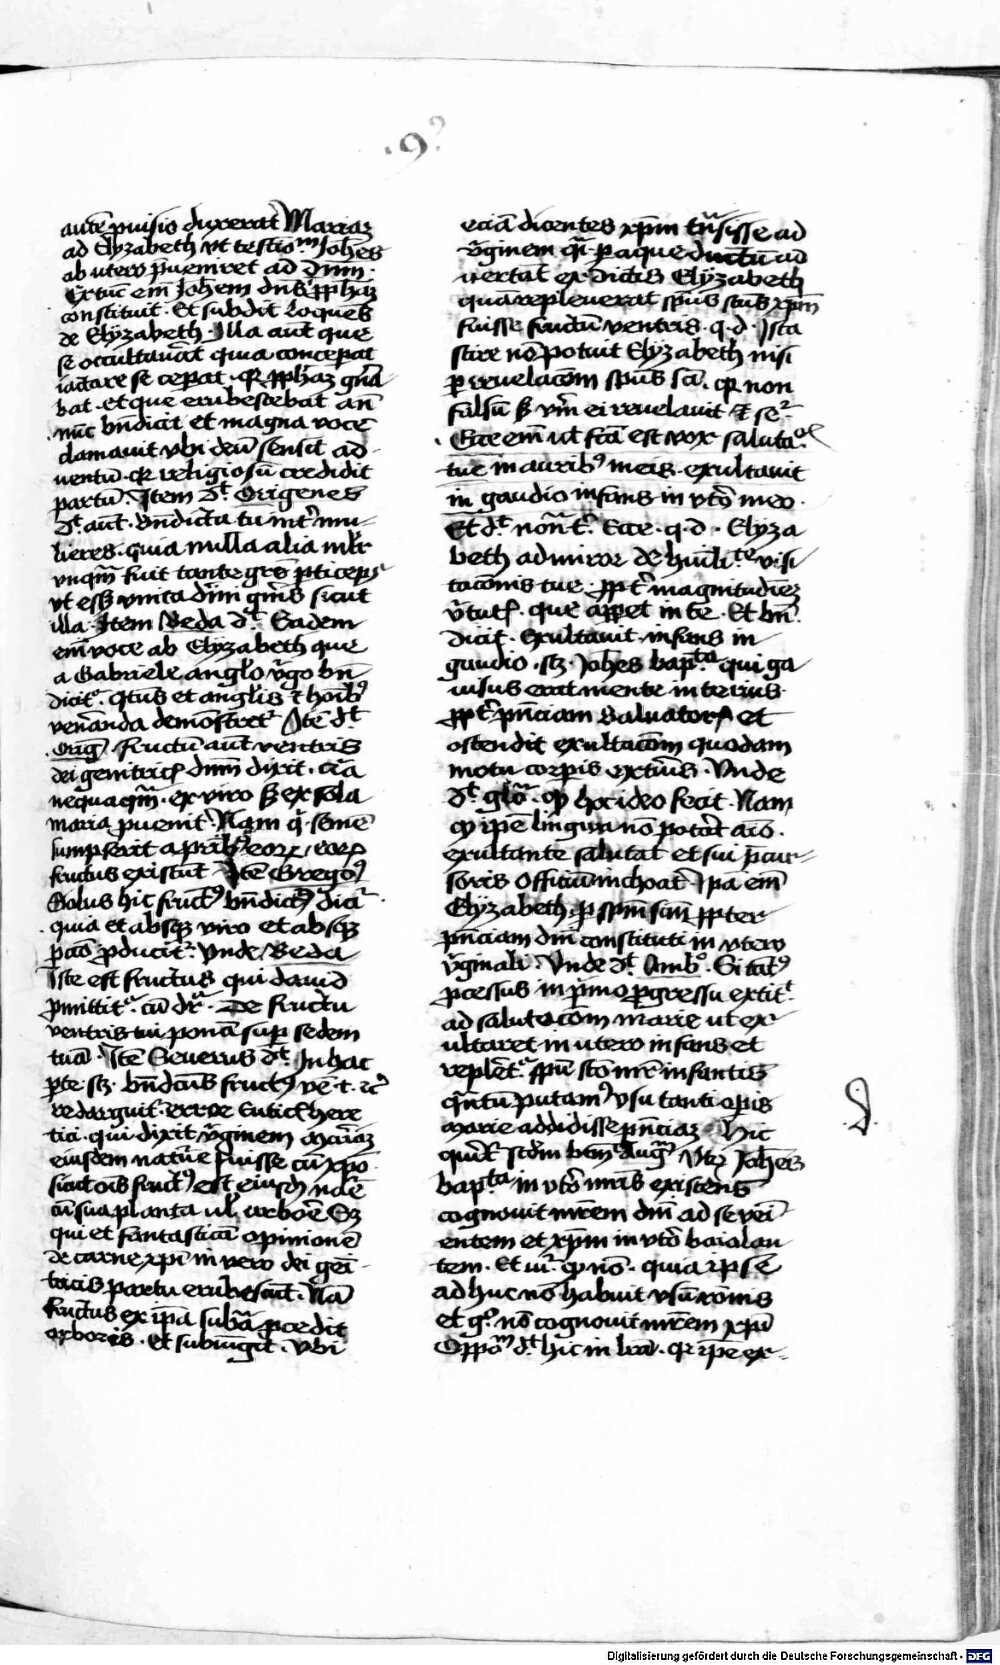 .9?
autē pͥuisio duxerat Mariaz
ad Elyzabeth vt testioᵐ Joh̄es
ab utero p̄ueniret ad dn̄m.
Ex tūc em̄ Joh̄em dn̄s ꝓph̄az
constituit. Et subdit loquēs
de Elyzabeth. Illa aūt que
se occultauāt quia conceperat
iactare se ceperat. qꝛ ꝓph̄az gn̄a
bat. et que erubescebat an̄
nūc bn̄dicit et magna voce
clamauit vbi deū sensit ad-
uentū. qꝛ religiosū credidit
partū. Item dt̄ Origenes
dt̄ aūt. bn̄dicta tu int̄ mu-
lieres. quia nulla alia ml̄r
vnqᵐ fuit tante gr̄e p̄ticeps
vt ess;
illa. Item Beda dt̄. Eadem
em̄ voce ab Elyzabeth que
a Gabriele angl̄o v̄go bn̄
dicit᷑. Qtus et angl̄is ⁊ hoīb⁹
ven̄anda demōstret᷑. Itē dt̄
Oriḡ. Fructū aūt ventris
dei genitricꝭ dn̄m dixit. cā
nequaqᵐ. ex viro s̄ ex sola
maria ꝓuenit. Nam q̄ semē
sumpserit a p̄rib⁹ eoꝝ, eoꝝ
fructus existūt. Itē Grego⁹
Solus hic fruct⁹ bn̄dict⁹ dicit᷑
quia et absqꝫ viro et absqꝫ
pcāo ꝓducit᷑. Vnde Beda
Iste est fructus qui dauid
ꝓmittit᷑. cū dr̄. De fructu
ventris tui ponā sup sedem
tuā. Itē Seuerus dt̄. In hac
ꝑte sꝫ. bn̄dictus fruct⁹ vē. t. ⁊c̄
redarguit. error Euticꝭ here
tici. qui dixit v̄ginem Mariaz
eiusdem nature fuisse cū xp̄o
sicut oīs fruct⁹ est eiusdē nat̄e
cū sua planta ul̄ arbore Sꝫ
qui et fantasticā opinionē
de carne xp̄i in vero dei geni-
tricis partu erubescāt. Nā
fructus ex ip̄a sub̄a ꝓcedit
arboris. Et subiūgit. Vbi
eciā dicentes xp̄m trāsisse ad
v̄ginem q̄i. ꝑ aqueductū ad
uertāt ex dictis Elyzabeth
quā repleuerat sp̄us scūs xp̄m
fuisse fructū ventris. q. d. Ista
scire nō potuit Elyzabeth nisi
ꝑ reuelacōem sp̄us scī. qꝛ non
falsū s̄ vm̄ ei reuelauit ⁊ se᷑
Ecce em̄ ut fcā est vox saluta᷑
tue in aurib⁹ meis. exultauit
in gaudio infans in vt̄o meo.
Elyza
beth admiror de humilite visi
tacōnis tue. ꝓpt̄ magnitudinez
v̄tutꝭ. que apꝑet in te. Et bn̄
dicit. Exultauit infans in
gaudio. sꝫ. Joh̄es bapᵗᵃ qui ga
uisus erat mente interius.
ꝓpt̄ p̄nciam saluatorꝭ et
ostendit exultacōem quodam
motu corꝑis exterius. Vnde
dt̄ glō. qꝫ hoc ideo fecit. Nam
qꝫ ip̄e lingua nō poterat aīo.
exultante salutat et sui p̄cur-
soris officiū inchoat. Ipā em̄
Elyzabeth. ꝑ sp̄m scm̄ ꝓpter
p̄nciam dn̄i constituti in vtero
v̄ginali. Vnde dt̄ Amb̄. Si tāt⁹
ꝓcessus in p̄mo ꝓgressu extit᷑.
ad salutacōem marie ut ex
ultaret in utero infans et
replet᷑ sp̄u scō mr̄ infantis
q̄ntū putam⁹ vsu tanti tꝑis
Marie addidisse p̄nciaz Hic
querit᷑ scdm̄ btm̄ Aug᷑. Vtꝝ Joh̄es
bapᵗᵃ in vt̄o mr̄is existens
cognouit mr̄em dn̄i ad se veni
entem et xp̄m in vt̄o baiolan
tem. Et ur̄. qꝫ nō. quia ip̄e
adhuc nō habuit vsū rōnis
et g⁰. nō cognouit mr̄em xp̄i
Oppoᵐ dt̄ hic in lrā. qꝛ ip̄e ex-
Digitalisierung gefördert durch die Deutsche Forschungsgemeinschaft - DFG